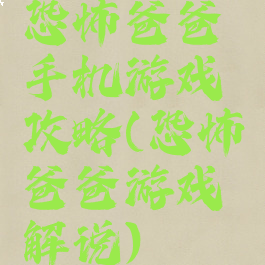 恐怖爸爸
手机游戏
攻略(恐怖
爸爸游戏
解说)